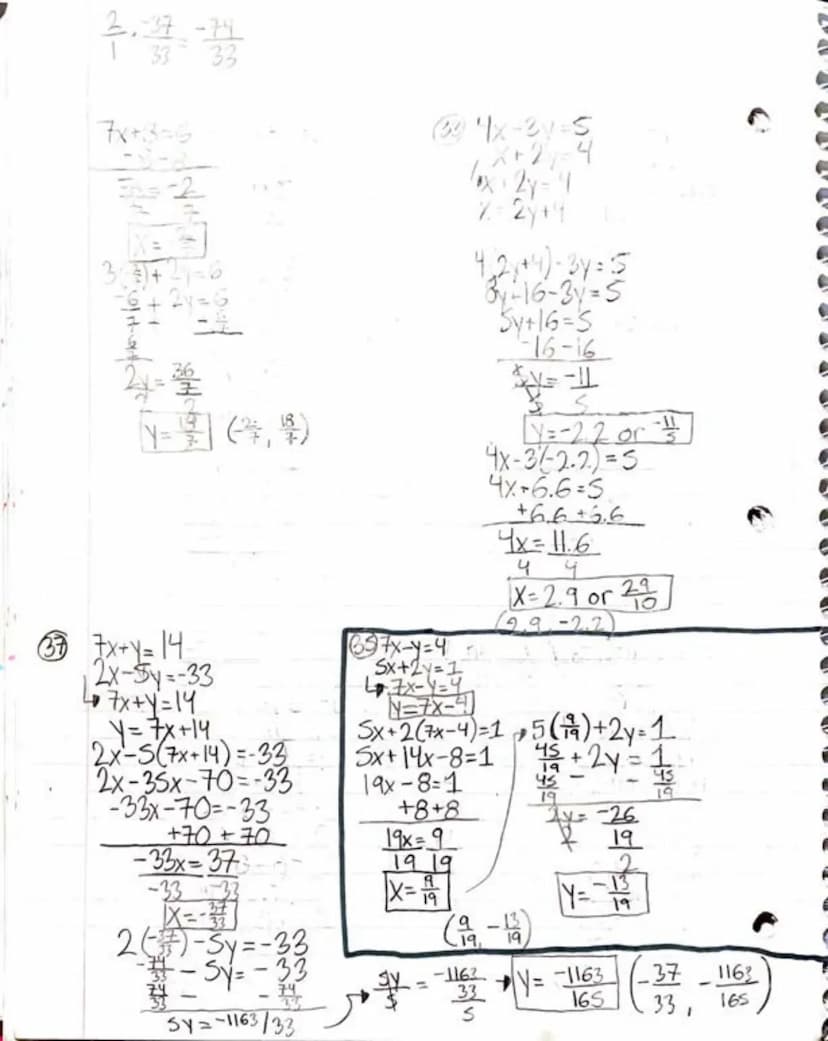 2/1 · -37/33 = -74/33
7x+3=5
-3 -3
7x/7 = -2/7
3( )+2y=6
-6/7 + 2y=6
6/7 - -6/7
2y/2 = 36/7/2
y = 19/7 (-2/7, 18/7)
(33) 4x-3y=5
x+2y=4
x+2y=4
x=2y+4
4(2y+4)-3y=5
8y+16-3y=5
5y+16=5
-16 -16
5y/5 = -11/5
y=-2.2 or -11/5
4x-3(-2.2)=5
4x-6.6=5
+6.6 +6.6
4x/4 = 11.6/4
x=2.9 or 29/10
(2.9, -2.2)
(37) 7x+y=14
2x-5y=-33
↳ 7x+y=14
y=7x+14
2x-5(7x+14)=-33
2x-35x-70=-33
-33x-70=-33
+70 +70
-33x/-33 = 37/-33
x=-37/33
2(-37/33)-5y=-33
-74/33 - 5y=-33
74/33 - -74/33
5y=-1163/33
→ 5y/5 = -1163/33/5 → y = -1163/165 (-37/33, -1163/165)
(35) 7x-y=4
5x+2y=1
↳ 7x-y=4
y=7x-4
5x+2(7x-4)=1
5x+14x-8=1
19x-8=1
+8 +8
19x/19 = 9/19
x=9/19
→ 5(9/19)+2y=1
45/19 + 2y = 1
45/19 - -45/19
2y/2 = -26/19/2
y=-13/19
(9/19, -13/19)